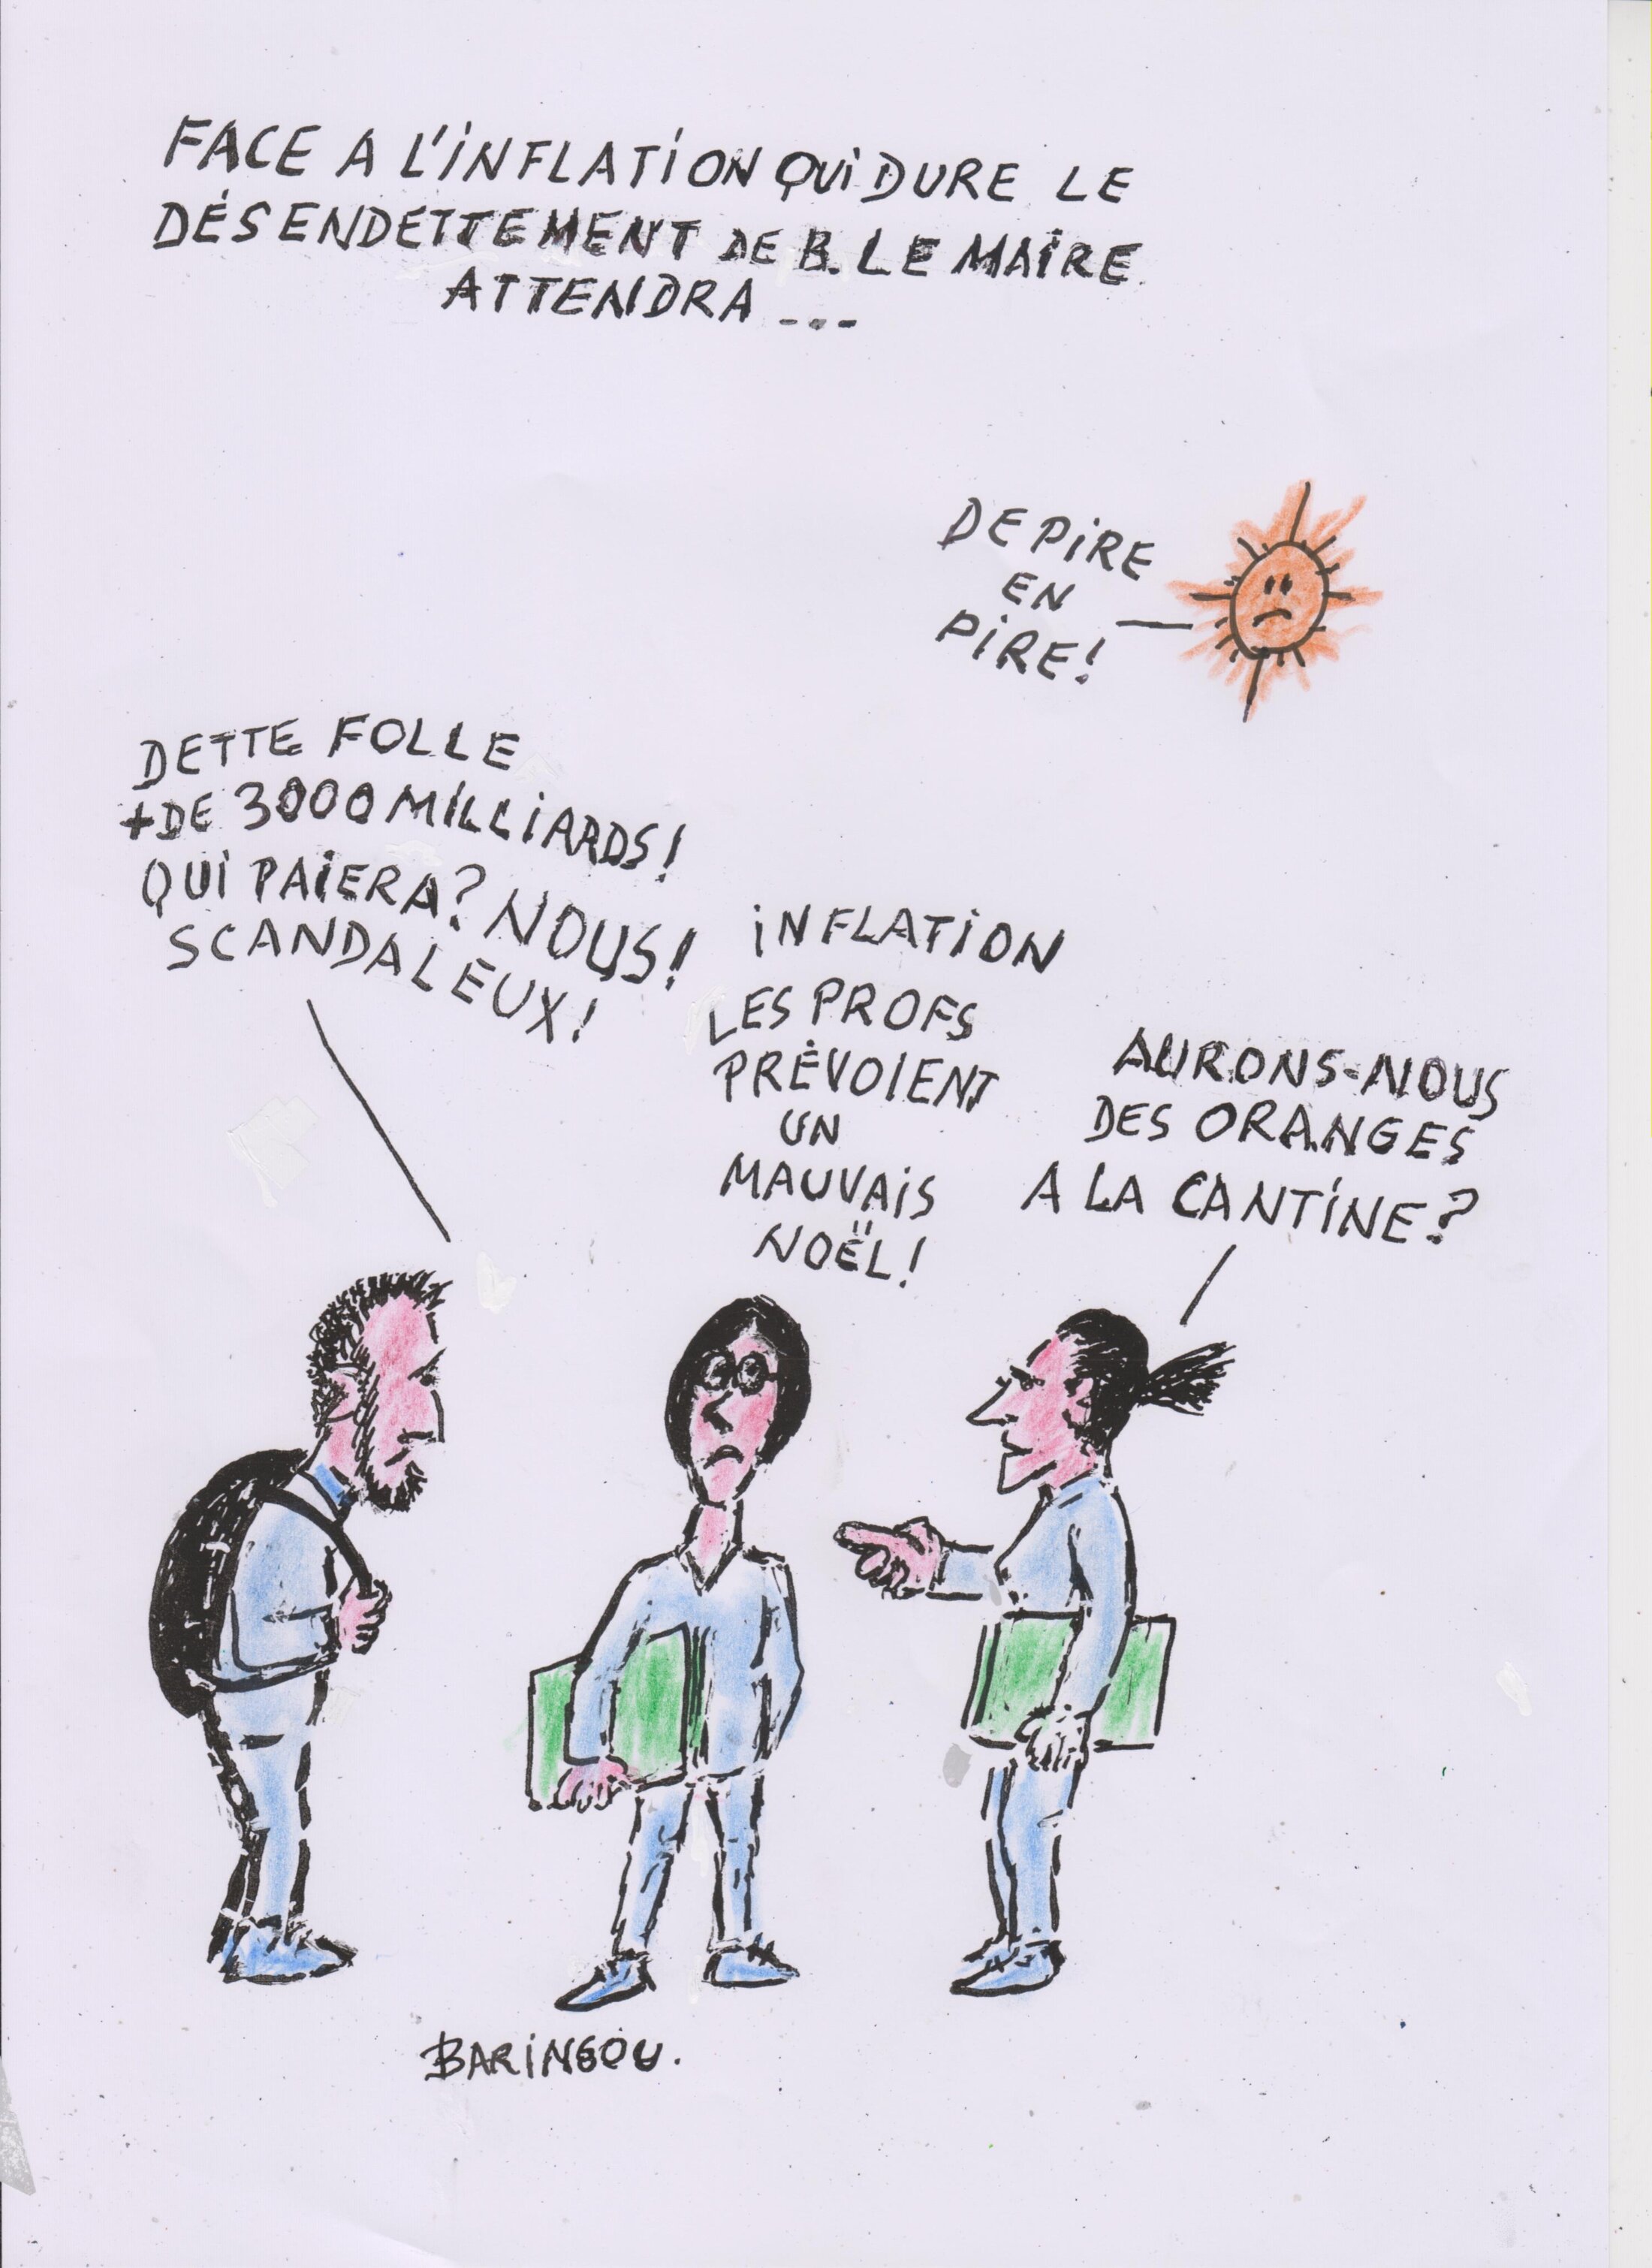 FACE A L'INFLATION QUI DURE LE
DÉSENDETTEMENT DE B. LE MAIRE
ATTENDRA ---
DE PIRE
EN
PIRE!
DETTE FOLLE
+DE 3000 MILLIARDS!
QUI PAIERA? NOUS!
SCANDALEUX!
INFLATION
LES PROFS
PRÉVOIENT
UN
MAUVAIS
NOËL!
AURONS-NOUS
DES ORANGES
A LA CANTINE?
BARINGOU.